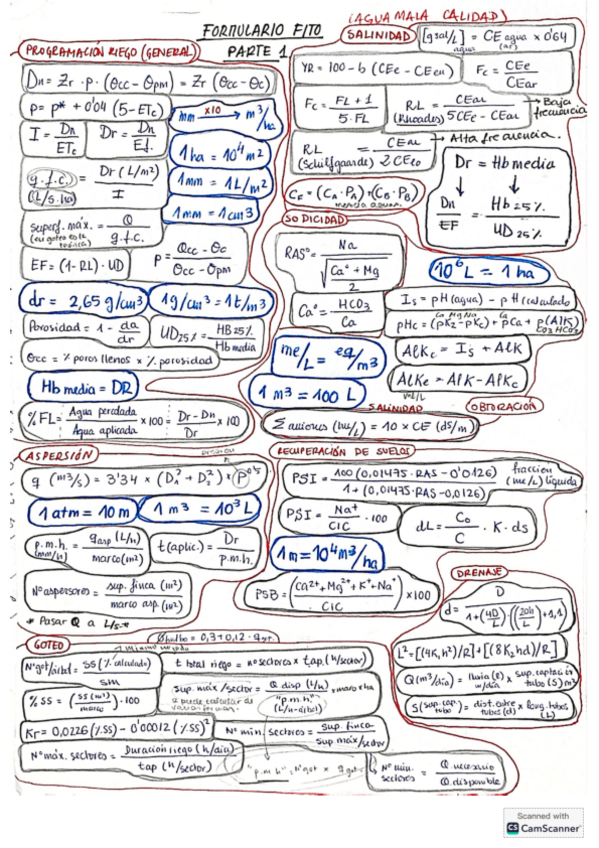 FORMULARIO FITO
PARTE 1
PROGRAMACIÓN RIEGO (GENERAL)
Dn = Zr · p · (θcc - θpm) = Zr (θcc - θc)
p = p* + 0'04 (5 - ETc)
mm x10 → m³/ha
I = Dn / ETc
Dr = Dn / Ef.
1 ha = 10⁴ m²
g.f.c. (L/s.ha) = Dr (L/m²) / I
1 mm = 1 L/m²
1 mm = 1 cm³
superf. máx. = Q / g.f.c.
EF = (1 - RL) · UD
P = θcc - θc / θcc - θpm
dr = 2,65 g/cm³
1 g/cm³ = 1 t/m³
Porosidad = 1 - da / dr
UD25% = HB 25% / Hb media
θcc = % poros llenos x % porosidad
Hb media = DR
% FL = Agua percolada / Agua aplicada x 100 = Dr - Dn / Dr x 100
(AGUA MALA CALIDAD)
SALINIDAD
[g sal/L] agua = CE agua x 0'64
YR = 100 - b (CEe - CEeu)
Fc = CEe / CEar
Fc = FL + 1 / 5·FL
RL (Rhoades) = CEar / 5CEe - CEar → Baja frecuencia
RL (Schilfgaarde) = CEar / 2CEeo → Alta frecuencia.
CF = (CA · PA) + (CB · PB)
mezcla aguas
Dr = Hb media
Dn / EF = Hb 25% / UD 25%
SODICIDAD
RAS° = Na / √ Ca° + Mg / 2
Ca° = HCO3 / Ca
10⁶ L = 1 ha
Is = pH (agua) - pH (calculado)
pHc = (pK2 - pKc) + pCa + p(Alk)
Ca Mg Na Ca CO3 HCO3
me/L = eq/m³
AlKc = Is + AlK
AlKe = AlK - AlKc
1 m³ = 100 L
SALINIDAD
OBTURACIÓN
Σ aniones (me/L) = 10 x CE (dS/m)
ASPERSIÓN
q (m³/s) = 3'34 x (D1² + D2²) x P^0'5
presión
1 atm = 10 m
1 m³ = 10³ L
p.m.h. (mm/h) = q asp (L/h) / marco (m²)
t (aplic.) = Dr / p.m.h.
Nº aspersores = sup. finca (m²) / marco asp. (m²)
* Pasar Q a L/s *
RECUPERACIÓN DE SUELOS
PSI = 100 (0,01475 · RAS - 0'0126) / 1 + (0,01475 · RAS - 0,0126) fracción (me/L) líquida
PSI = Na⁺ / CIC · 100
dL = Co / C · K · ds
1 m = 10⁴ m³/ha
PSB = (Ca²⁺ + Mg²⁺ + K⁺ + Na⁺ / CIC) x 100
DRENAJE
L² = [(4K1h²)/R] + [(8K2hd)/R]
Q (m³/día) = lluvia (R) m/día x sup. captación tubo (S) m²
S (sup. cap. tubo) = dist. entre tubos (d) x long. tubos (L)
GOTEO
Ø bulbo = 0,3 + 0,12 ·
Nº got/árbol = SS (% calculado) / sm
t total riego = nº sectores x t ap. (h/sector)
% SS = (SS (m²) / marco) · 100
sup. máx/sector = Q disp (L/h) / "p.m.h" (L/h·árbol) x marco
Kr = 0,0226 (% SS) - 0'00012 (% SS)²
Nº mín. sectores = sup. finca / sup máx/sector
Nº máx. sectores = Duración riego (h/día) / t ap (h/sector)
Nº min. sectores = Q necesario / Q disponible
Scanned with
CS CamScanner